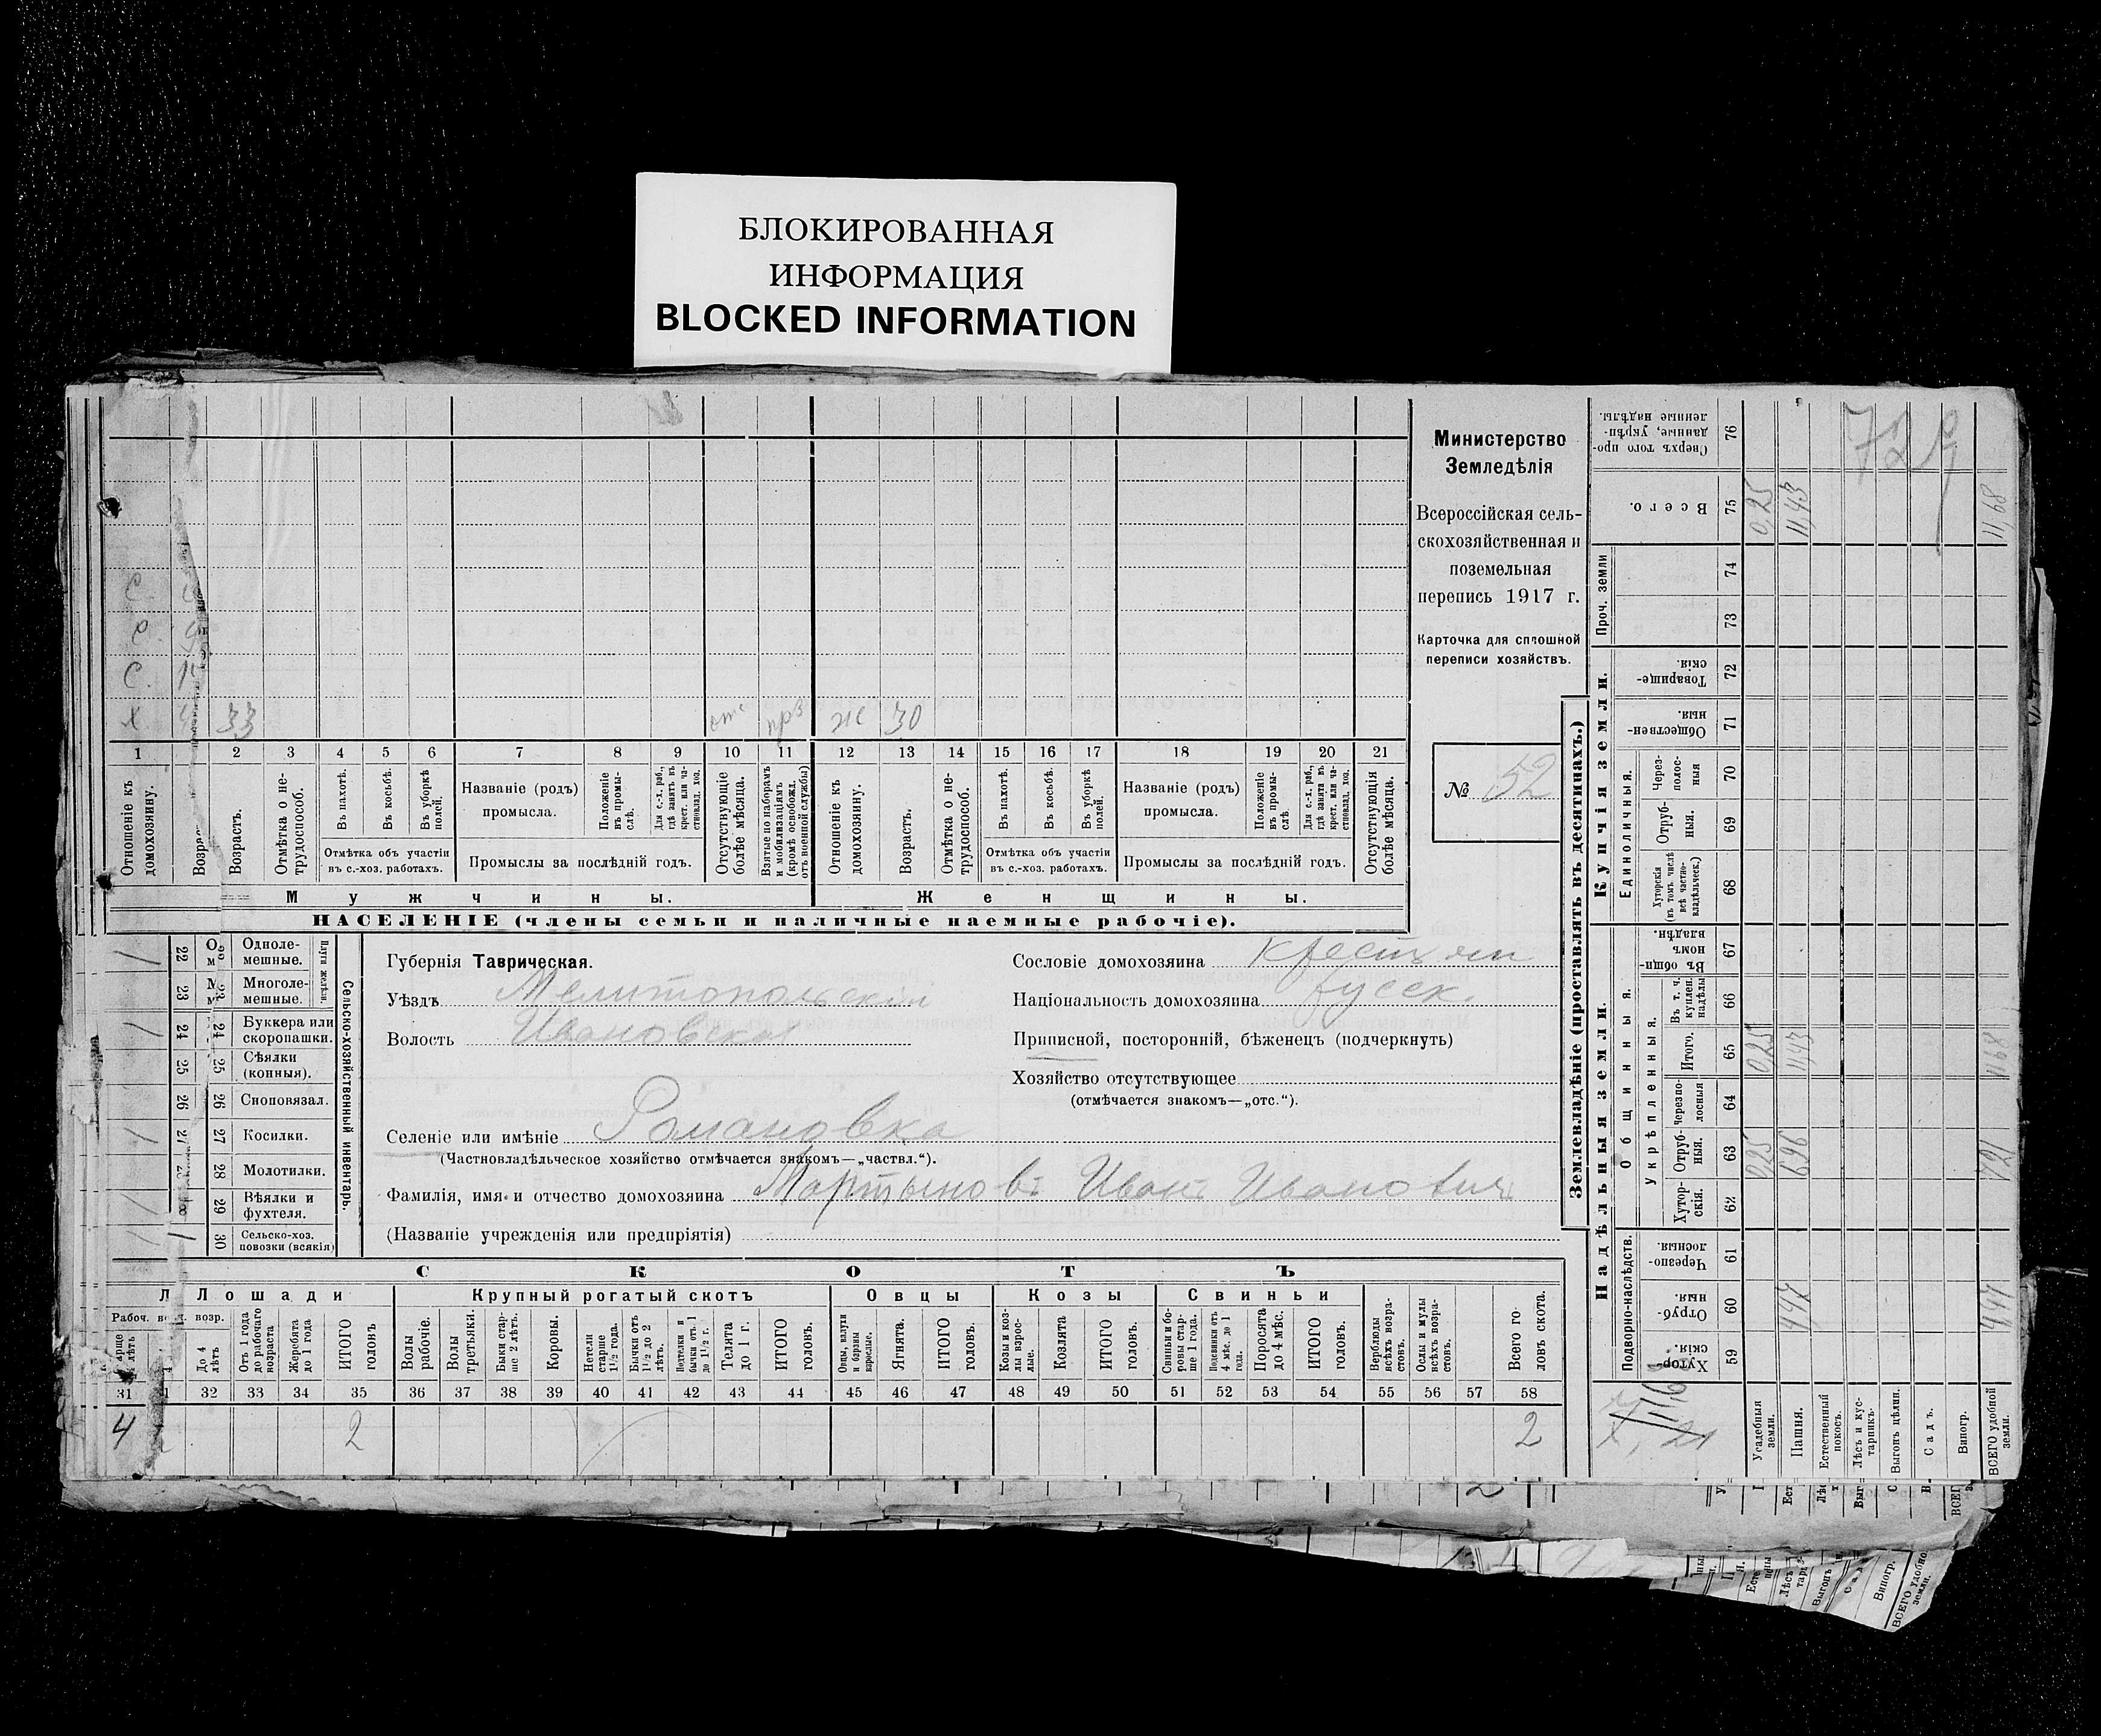 БЛОКИРОВАННАЯ
ИНФОРМАЦИЯ
BLOCKED INFORMATION
Министерство
Земледѣлія
Всероссійская сель-
скохозяйственная и
поземельная
перепись 1917 г.
Карточка для сплошной
переписи хозяйствъ.
№ 52
С.
С.
С.
Х 33 отс 30
1 2 3 4 5 6 7 8 9 10 11 12 13 14 15 16 17 18 19 20 21
Отношеніе къ домохозяину.
Возрастъ.
Отмѣтка о не-трудоспособ.
Въ пахотѣ.
Въ косьбѣ.
Въ уборкѣ полей.
Отмѣтка объ участіи
въ с.-хоз. работахъ.
Названіе (родъ)
промысла.
Положеніе въ промы-слѣ.
Для с.-х. раб., гдѣ занятъ въ крест. или ча-стновлад. хоз.
Промыслы за послѣдній годъ.
Отсутствующіе болѣе мѣсяца.
Взятые по наборамъ и мобилизаціямъ (кромѣ освобожд. отъ военной службы)
Отношеніе къ домохозяину.
Возрастъ.
Отмѣтка о не-трудоспособ.
Въ пахотѣ.
Въ косьбѣ.
Въ уборкѣ полей.
Отмѣтка объ участіи
въ с.-хоз. работахъ.
Названіе (родъ)
промысла.
Положеніе въ промы-слѣ.
Для с.-х. раб., гдѣ занята въ крест. или ча-стновлад. хоз.
Промыслы за послѣдній годъ.
Отсутствующія болѣе мѣсяца.
Мужчины.
Женщины.
НАСЕЛЕНІЕ (члены семьи и наличные наемные рабочіе).
Сельско-хозяйственный инвентарь.
Плуги желѣзн.
22 Одноле-мешные.
23 Многоле-мешные.
24 Буккера или скоропашки.
25 Сѣялки (конныя).
26 Сноповязал.
27 Косилки.
28 Молотилки.
29 Вѣялки и фухтеля.
30 Сельско-хоз. повозки (всякія)
Губернія Таврическая.
Уѣздъ Мелитопольскій
Волость Ивановская
Селеніе или имѣніе Романовка
(Частновладѣльческое хозяйство отмѣчается знакомъ—„частвл.“).
Фамилія, имя и отчество домохозяина Мартыновъ Иванъ Ивановичъ
(Названіе учрежденія или предпріятія)
Сословіе домохозяина крестьян
Національность домохозяина русск.
Приписной, посторонній, бѣженецъ (подчеркнуть)
Хозяйство отсутствующее
(отмѣчается знакомъ—„отс.“).
СКОТЪ
Лошади
Крупный рогатый скотъ
Овцы
Козы
Свиньи
До 4 лѣтъ
Отъ 1 года до рабочаго возраста
Жеребята до 1 года
ИТОГО головъ
Волы рабочіе.
Волы третьяки.
Быки стар-ше 2 лѣтъ.
Коровы.
Нетели старше 1½ года.
Бычки отъ 1½ до 2 лѣтъ.
Подтелки и бычки отъ 1 до 1½ г.
Телята до 1 г.
ИТОГО головъ.
Овцы, валухи и бараны взрослые.
Ягнята.
ИТОГО головъ.
Козы и коз-лы взрос-лые.
Козлята
ИТОГО головъ.
Свиньи и бо-ровы стар-ше 1 года.
Подсвинки отъ 4 мѣс. до 1 года.
Поросята до 4 мѣс.
ИТОГО головъ.
Верблюды всѣхъ возра-стовъ.
Ослы и мулы всѣхъ возра-стовъ.
Всего го-ловъ скота.
31 32 33 34 35 36 37 38 39 40 41 42 43 44 45 46 47 48 49 50 51 52 53 54 55 56 57 58
4 2 2
Землевладѣніе (проставлять въ десятинахъ.)
Надѣльныя земли.
Купчія земли.
Проч. земли
Подворно-наслѣдств.
Общинныя.
Укрѣпленныя.
Единоличныя.
59 Хутор-скія.
60 Отруб-ныя.
61 Черезпо-лосныя
62 Хутор-скія.
63 Отруб-ныя.
64 Черезпо-лосныя
65 Итого.
66 Въ т. ч. куплен. надѣлы
67 Въ общин-номъ владѣн.
68 Хуторскія (въ томъ числѣ всѣ частно-владѣльческ.)
69 Отруб-ныя.
70 Через-полос-ныя
71 Обществен-ныя.
72 Товарище-скія.
73
74
75 Всего.
76 Сверхъ того про-данные, укрѣп-ленные надѣлы.
Усадебныя земли. 0,25 0,25 0,25
Пашня. 4,47 6,96 11,43 11,43
Естественный покосъ.
Лѣсъ и кус-тарникъ.
Выгонъ цѣлин.
Садъ.
Виногр.
ВСЕГО удобной земли. 4,47 7,21 11,68 11,68